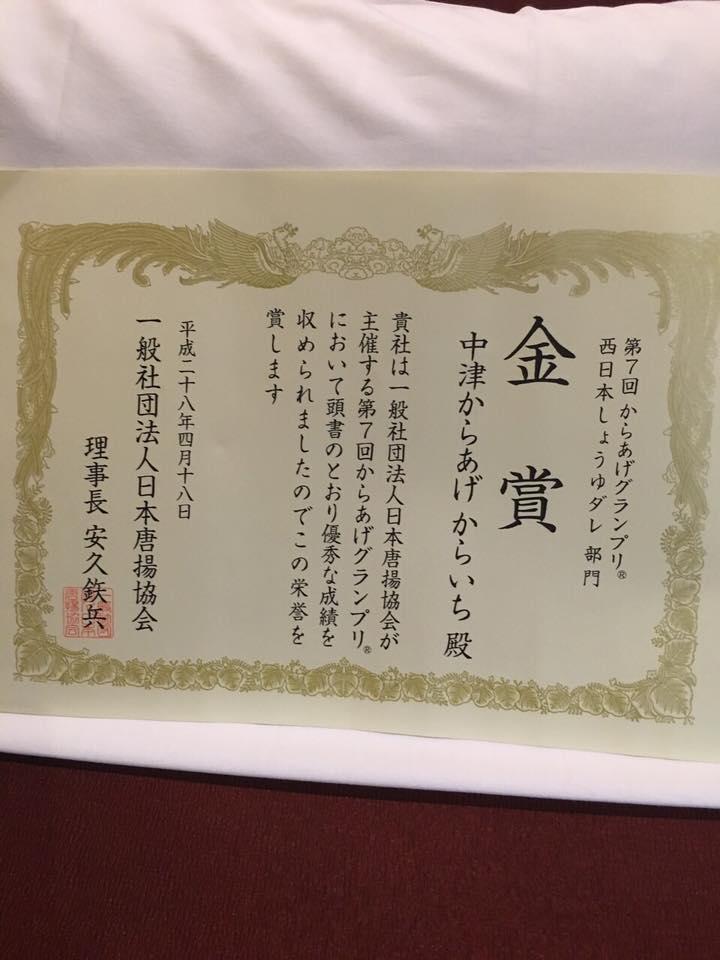 第7回 からあげグランプリ®
西日本しょうゆダレ 部門
金賞
中津からあげ からいち 殿
貴社は一般社団法人日本唐揚協会が
主催する第7回からあげグランプリ®
において頭書のとおり優秀な成績を
収められましたのでこの栄誉を
賞します
平成二十八年四月十八日
一般社団法人日本唐揚協会
理事長 安久鉄兵